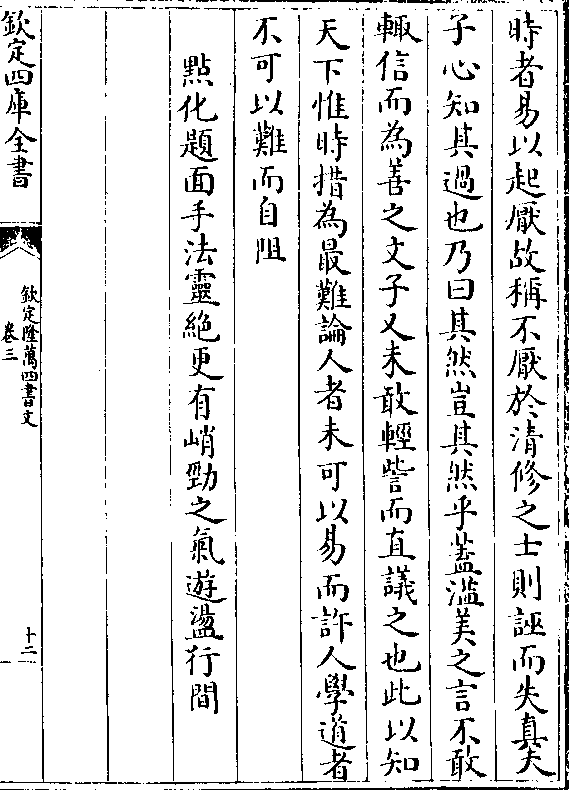 時者易以起厭故稱不厭於清修之士則誣而失真夫
子心知其過也乃曰其然豈其然乎蓋溢美之言不敢
輙信而為善之文子又未敢輕訾而直議之也此以知
天下惟時措為最難論人者未可以易而許人學道者
不可以難而自阻
點化題面手法靈絶更有峭勁之氣遊盪行間
欽定四庫全書
欽定隆萬四書文
卷三
十二